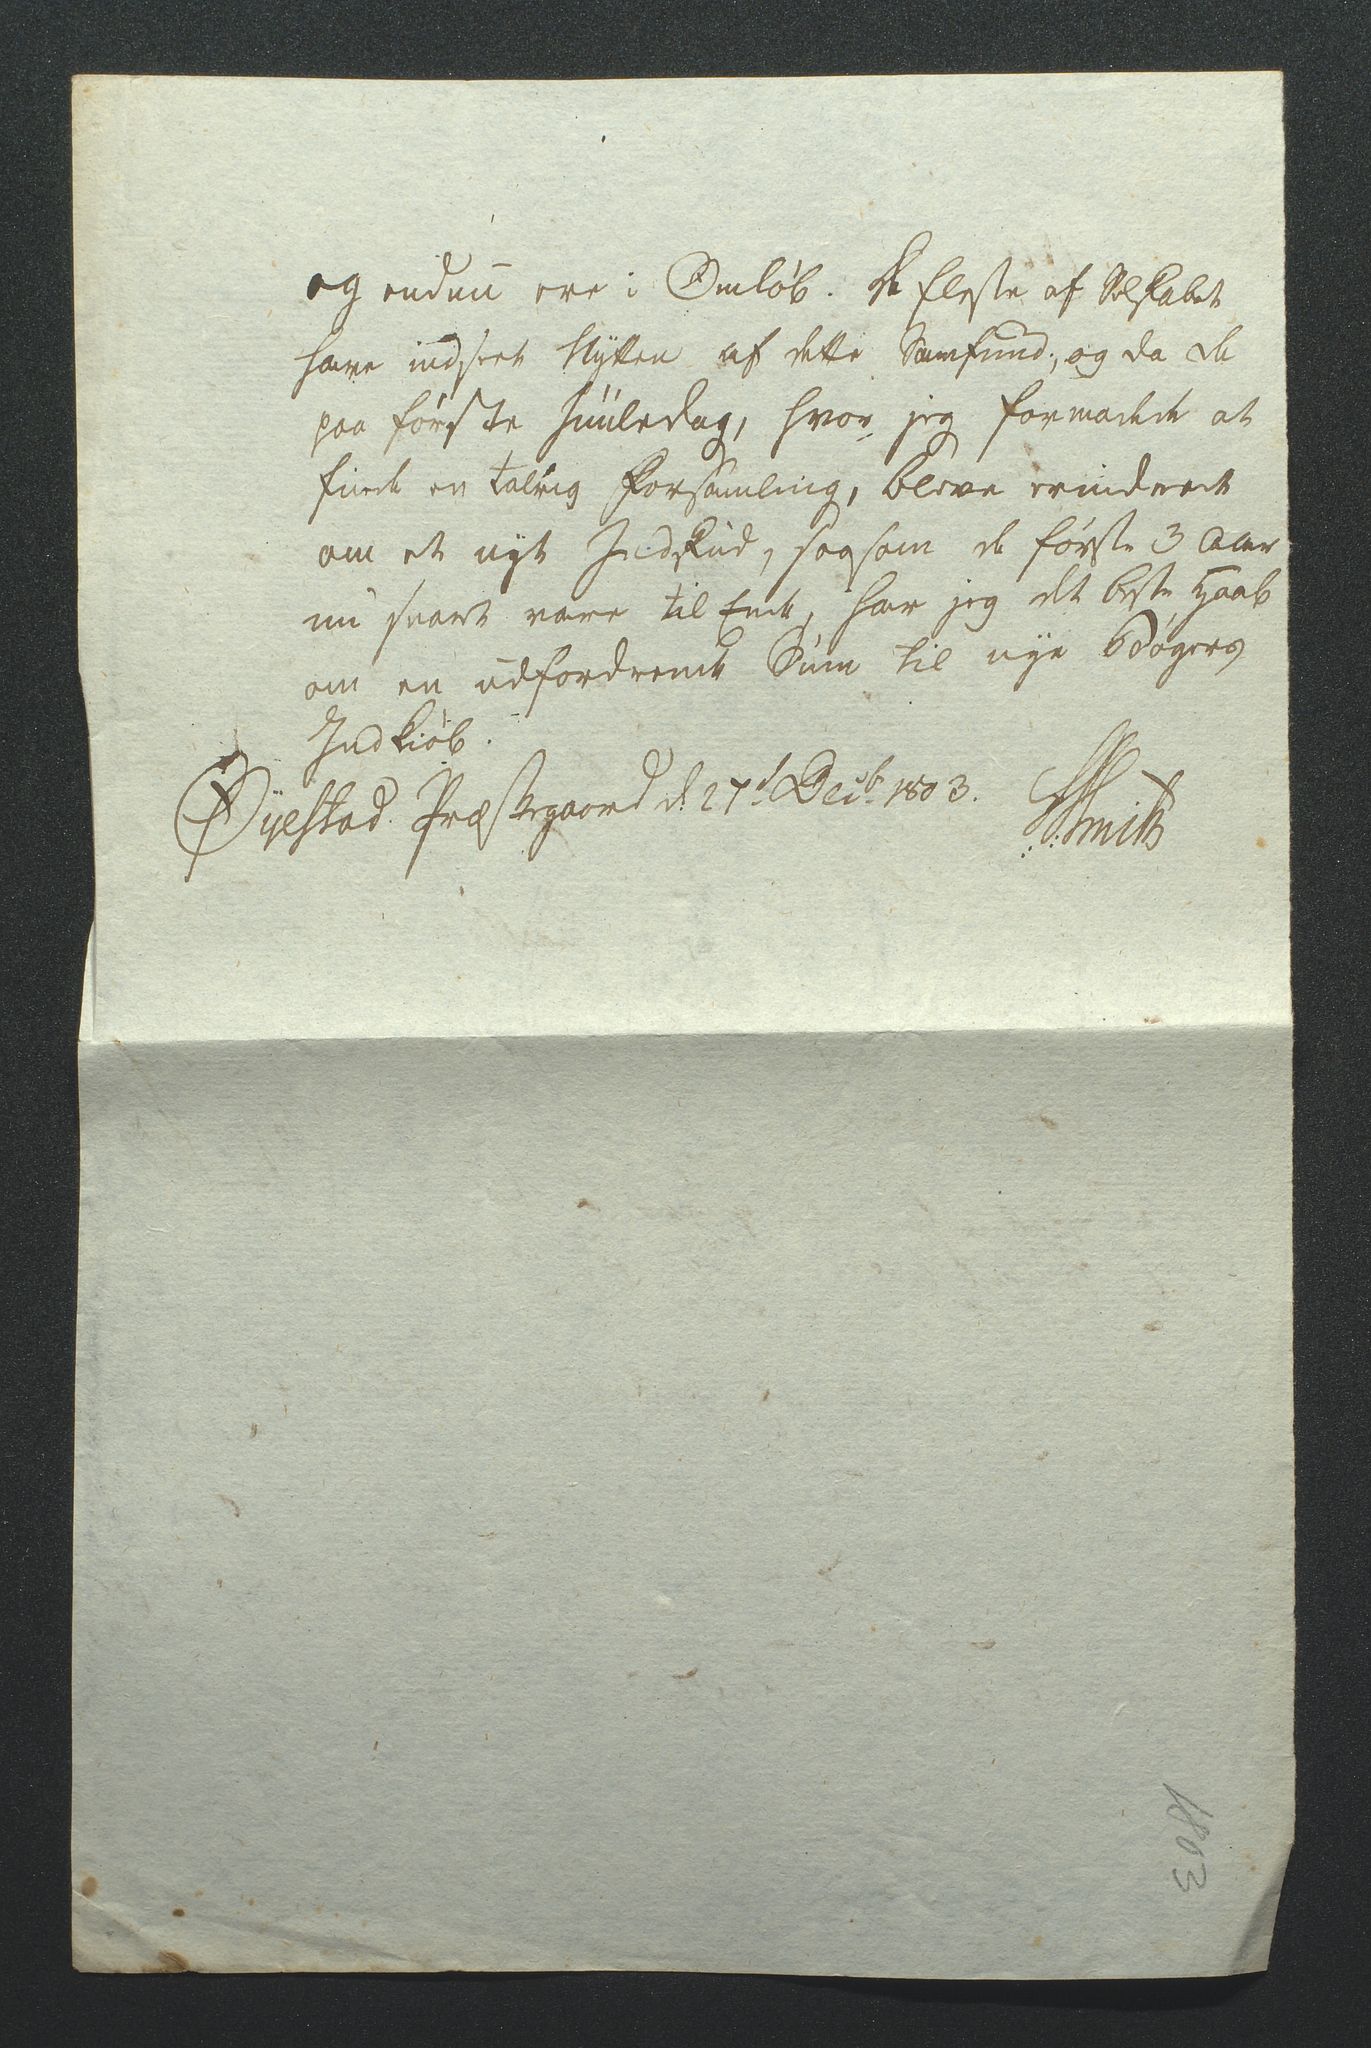 og endnu ere i Omløb. De fleste af Selskabet
have indseet Nytten af dette Samfund, og da de
paa første Juuledag, hvor jeg formodede at
finde en talrig Forsamling, bleve erindrede
om et nyt Indskud, saasom de første 3 Aar
nu snart vare til Ende, har jeg det beste Haab
om en udfordrende Sum til nye Bøgers
Indkiøb.
Øyestad Præstegaard d. 27d Decb. 1803.
Smith
1803